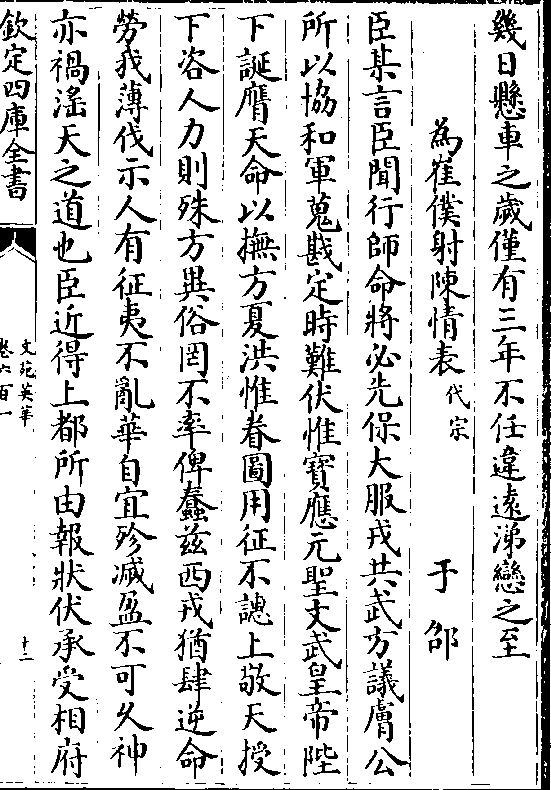 幾日懸車之歲僅有三年不任違遠涕戀之至
為崔僕射陳情表代宗 于邵
臣某言臣聞行師命將必先保大服戎共武方議膚公
所以協和軍蒐戡定時難伏惟寶應元聖文武皇帝陛
下誕膺天命以撫方夏洪惟眷圖用征不譓上敬天授
下咨人力則殊方異俗罔不率俾蠢兹西戎猶肆逆命
勞我薄伐示人有征夷不亂華自宜殄滅盈不可久神
亦禍滛天之道也臣近得上都所由報狀伏承受相府
欽定四庫全書
文苑英華
卷六百一
十二